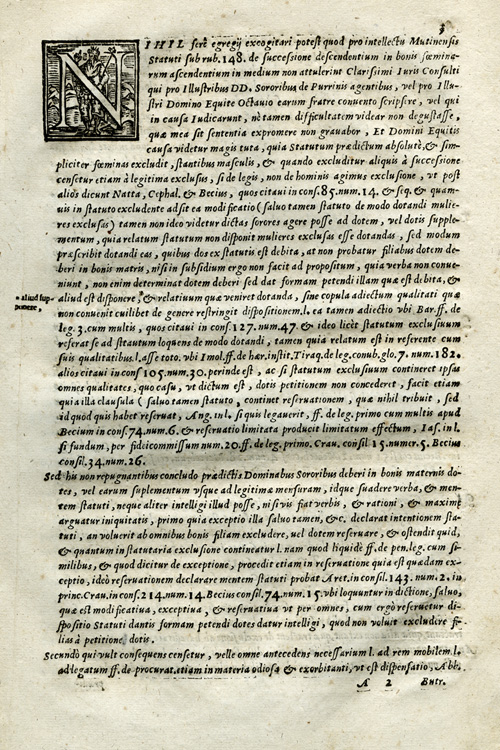 3
NIHIL ferè egregij excogitari potest quod pro intellectu Mutinensis
Statuti sub rub. 148. de successione descendentium in bonis fœmina-
rum ascendentium in medium non attulerint Clarissimi Iuris Consulti
qui pro Illustribus DD. Sororibus de Purrinis agentibus, vel pro Illu-
stri Domino Equite Octauio earum fratre conuento scripsere, vel qui
in causa Iudicarunt, nè tamen difficultatem videar non degustasse,
quæ mea sit sententia expromere non grauabor, Et Domini Equitis
causa videtur magis tuta, quia Statutum prædictum absolutè, & sim-
pliciter fœminas excludit, stantibus masculis, & quando excluditur aliquis à successione
censetur etiam à legitima exclusus, si de legis, non de hominis agimus exclusione, vt post
alios dicunt Natta, Cephal. & Becius, quos citaui in cons. 85. num. 14. & seq. & quam-
uis in statuto excludente adsit ea modificatio (saluo tamen statuto de modo dotandi mulie-
res exclusas) tamen non ideo videtur dictas sorores agere posse ad dotem, vel dotis supple-
mentum, quia relatum statutum non disponit mulieres exclusas esse dotandas, sed modum
præscribit dotandi eas, quibus dos ex statutis est debita, at non probatur filiabus dotem de-
beri in bonis matris, nisi in subsidium ergo non facit ad propositum, quia verba non conue-
niunt, non enim determinat dotem deberi sed dat formam petendi illam quæ est debita, &
* aliud sup-
ponere,
aliud est disponere, * & relatiuum quæ veniret dotanda, sine copula adiectum qualitati quæ
non conuenit cuilibet de genere restringit dispositionem. l. ea tamen adiectio vbi Bar. ff. de
leg. 3. cum multis, quos citaui in cons. 127. num. 47. & ideo licèt statutum exclusiuum
referat se ad statutum loquens de modo dotandi, tamen quia relatum est in referente cum
suis qualitatibus l. asse toto. vbi Imol. ff. de hær. instit. Tiraq. de leg. conub. glo. 7. num. 182.
alios citaui in cons. 105. num. 30. perinde est, ac si statutum exclusiuum contineret ipsas
omnes qualitates, quo casu, vt dictum est, dotis petitionem non concederet, facit etiam
quia illa clausula (saluo tamen statuto, continet reseruationem, quæ nihil tribuit, sed
id quod quis habet reseruat, Ang. in l. si quis legauerit, ff. de leg. primo cum multis apud
Becium in cons. 74. num. 6. & reseruatio limitata producit limitatum effectum, Ias. in l.
si fundum, per fideicommissum num. 20. ff. de leg. primo. Crau. consil. 15. numer. 5. Becius
consil. 34. num. 26.
Sed his non repugnantibus concludo prædictis Dominabus Sororibus deberi in bonis maternis do-
tes, vel earum suplementum vsque ad legitimæ mensuram, idque suadere verba, & men-
tem statuti, neque aliter intelligi illud posse, nisi vis fiat verbis, & rationi, & maximè
arguatur iniquitatis, primo quia exceptio illa saluo tamen, &c. declarat intentionem sta-
tuti, an voluerit ab omnibus bonis filiam excludere, uel dotem reseruare, & ostendit quid,
& quantum in statutaria exclusione contineatur l. nam quod liquidè ff. de pen. leg. cum si-
milibus, & quod dicitur de exceptione, procedit etiam in reseruatione quia est quædam ex-
ceptio, ideò reseruationem declarare mentem statuti probat Aret. in cons. 143. num. 2. in
princ. Crau. in cons. 214. num. 14. Becius consil. 74. num. 15. vbi loquuntur in dictione, saluo,
quæ est modificatiua, exceptiua, & reseruatiua vt per omnes, cum ergò reseruetur di-
spositio Statuti dantis formam petendi dotes datur intelligi, quod non voluit excludere fi-
lias à petitione dotis.
Secundò qui vult consequens censetur, velle omne antecedens necessarium l. ad rem mobilem l.
ad legatum ff. de procurat. etiam in materia odiosa & exorbitanti, vt est dispensatio, Abb.
A 2 Butr.